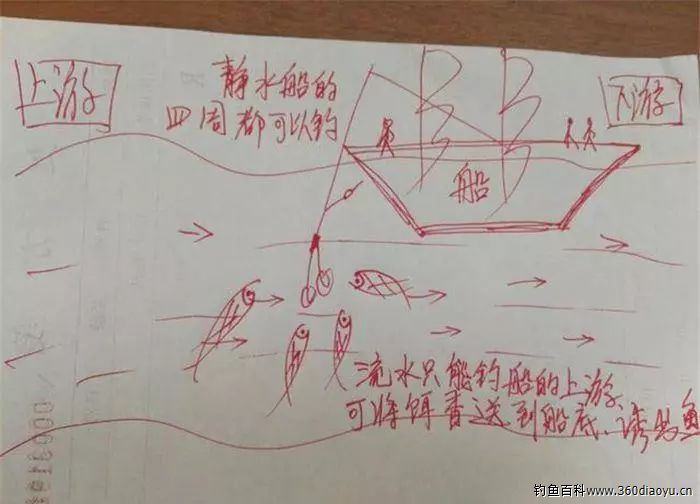 上游
静水船的
四周都可以钓
下游
船
流水只能钓船的上游
可将饵香送到船底、诱鱼
钓鱼百科www.360diaoyu.cn